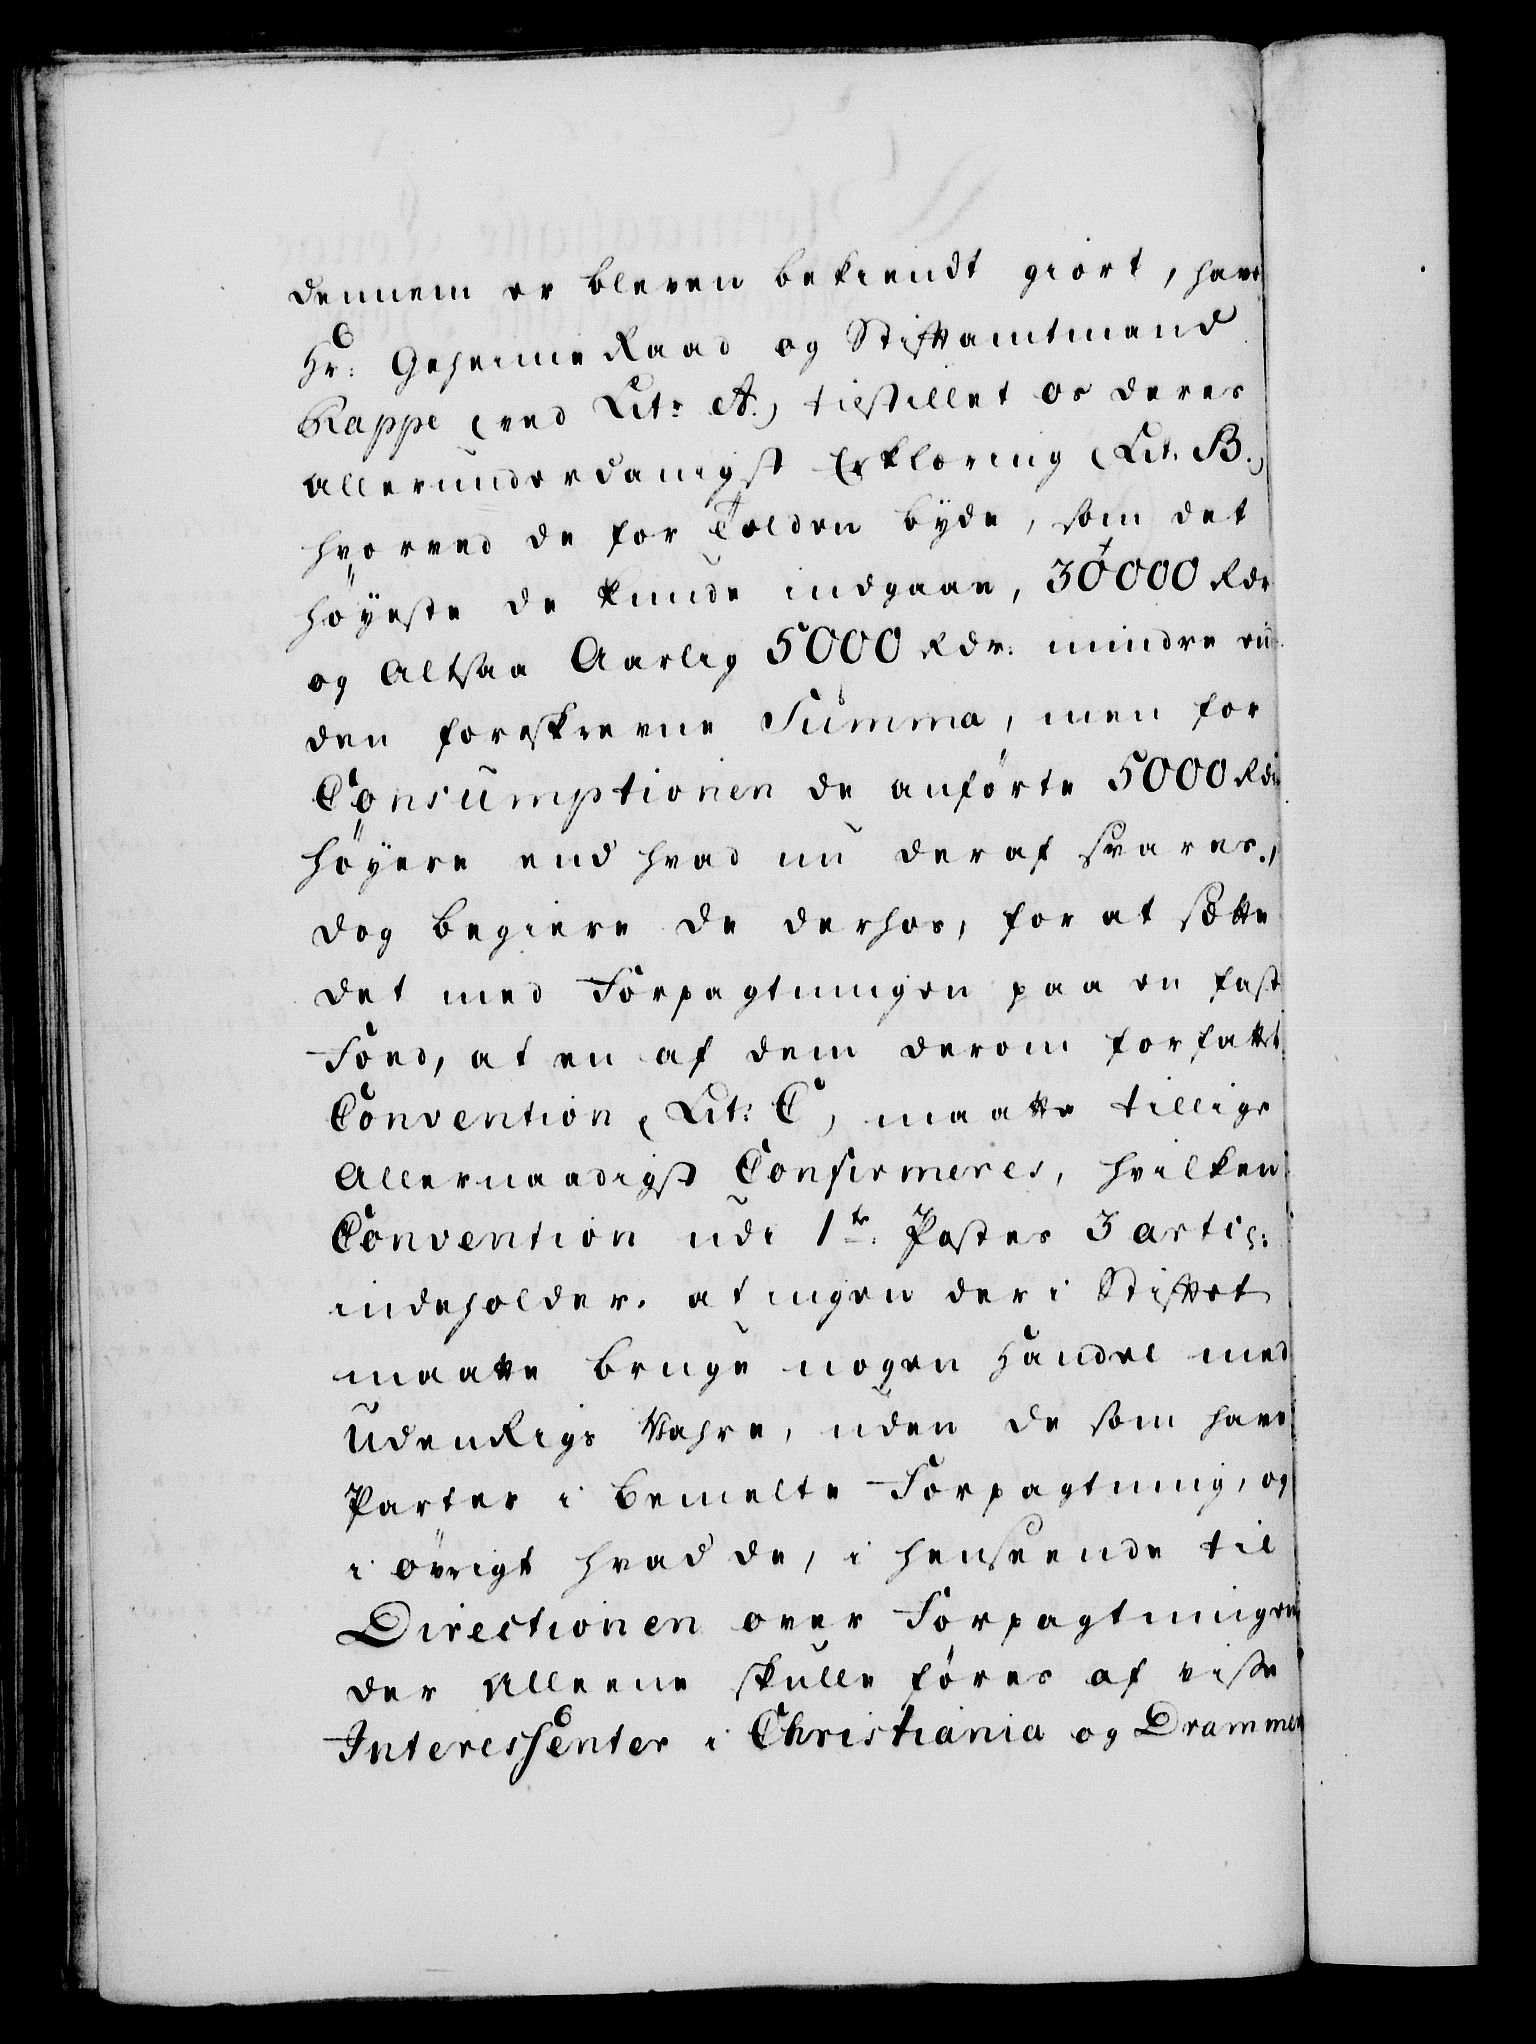 dennem er bleven bekiendt giort, have
Hr: Geheime Raad og Stiftamtmand
Rappe (ved Litr A.) tilstillet os deres
allerunderdanigst Erklæring (Lit. B.)
hvorved de for Tolden byde, som det
høyeste de kunde indgaae, 30000 Rdr
og altsaa Aarlig 5000 Rdr: mindre end
den foreskrevne Summa, men for
Consumptionen de anførte 5000 Rdr
høyere end hvad nu deraf svares.,
dog begiere de derhos, for at sætte
det med Forpagtningen paa en fast
Foed, at en af dem derom forfattet
Convention (Lit: C) maatte tillige
Allernaadigst Confirmeres, hvilken
Convention udi 1te Postes 3 artic:
indeholder. at ingen der i Stiftet
maatte bruge nogen Handel med
UdenRigs Vahre, uden de som have
Parter i bemelte Forpagtning, og
i øvrigt hvad de, i henseende til
Directionen over Forpagtningen
der alleene skulle føres af visse
Interessenter i Christiania og Drammen